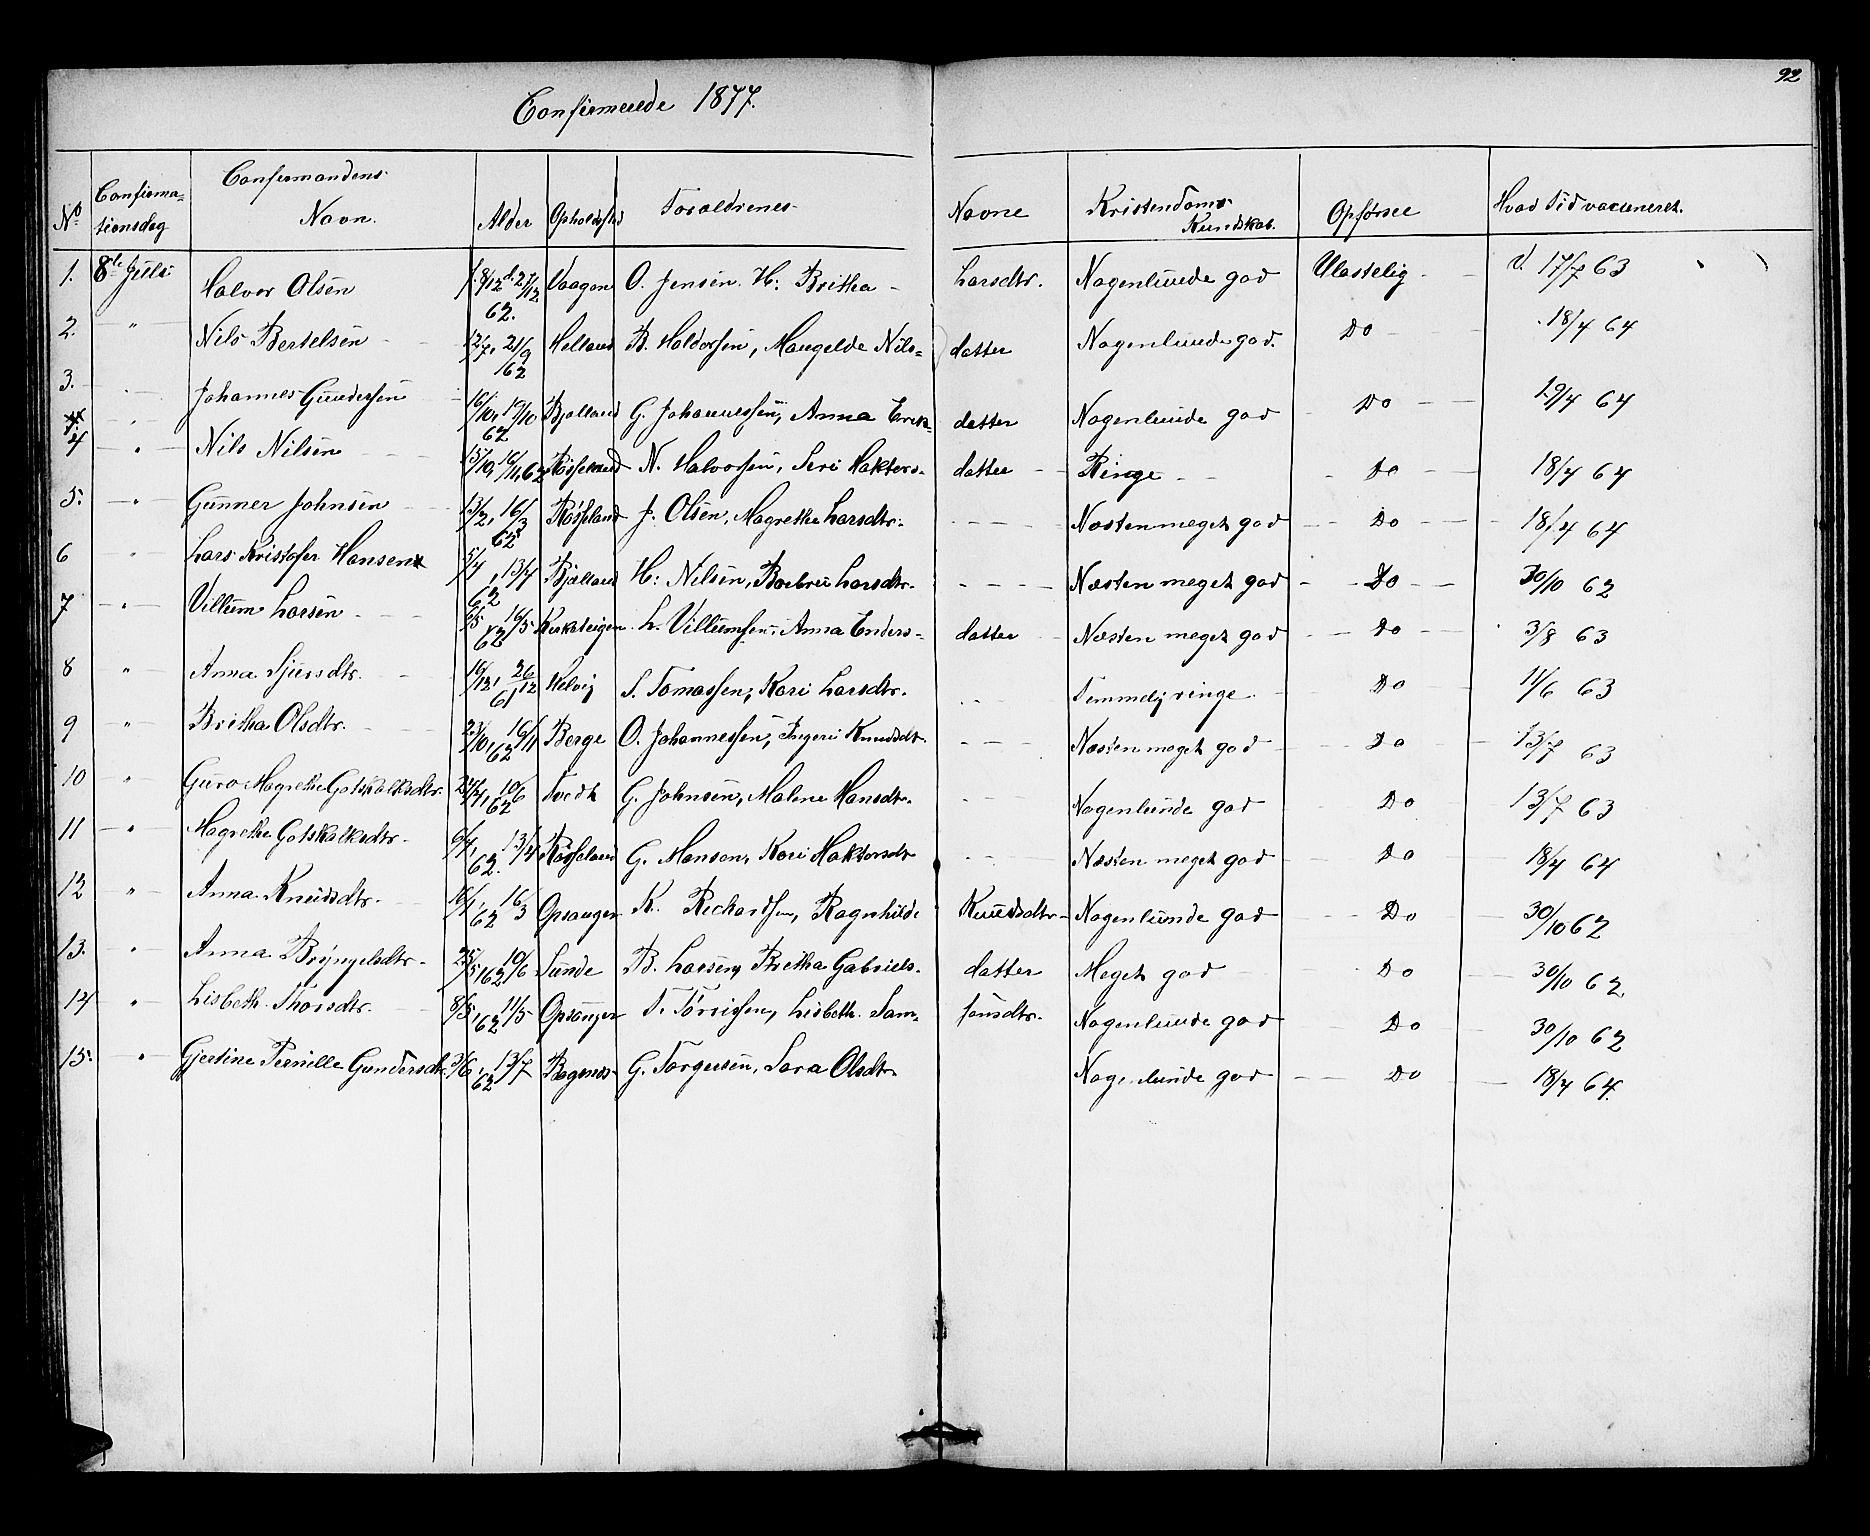 92
Confirmerede 1877.
No Confirmationsdag Confirmandens Navn. Alder Opholdssted Foraldrenes Navne Kristendoms Kundskab. Opførsel Hvad Tid vaccineret.
1. 8de Juli Halvor Olsen f. 8/12 d. 27/12 62. Vaagen O. Jensen. H: Britha Larsdtr. Nogenlunde god Ulastelig V. 17/7 63
2. " Nils Bertelsen 12/7, 21/9 62 Helland B. Haldorsen, Maugelde Nils= datter Nogenlunde god. Do 18/4 64
3. Johannes Gundersen 16/10, 19/10 62 Bjælland G. Johannessen, Anna Erick= datter Nogenlunde god Do 19/4 64
4 " Nils Nilsen 15/10, 16/11, 62 Røsseland N. Halvorsen, Seri Haktors= datter Ringe Do 18/4 64
5. " Gunner Johnsen 13/2, 16/3 62 Røsseland J. Olsen, Magrethe Larsdtr. Næsten meget god Do 18/4 64
6 " Lars Kristofer Hansen 5/4, 13/4 62 Bjælland H: Nilsen, Barbru Larsdtr. Næsten meget god Do 30/10 62
7 " Villum Larsen 6/5 16/5 62 Kirketeigen L. Villumsen, Anna Enders= datter Næsten meget god Do 3/8 63
8 " Anna Sjursdtr. 16/12, 26/12 61 Helvig S. Tomassen, Kari Larsdtr. Temmelig ringe Do 11/6 63
9 " Britha Olsdtr. 23/10, 16/11 62 Berge O. Johannessen, Ingeri Knudsdtr. Næsten meget god Do 13/7 63
10 " Guro Magrethe Gotskalksdtr. 10/6 62 Tvedt G. Johnsen, Malene Hansdtr. Nogenlunde god Do 13/7 63
11 " Magrethe Gotskalksdtr. 6/4, 13/4 62. Røsseland G. Monsen, Kari Haktorsdtr Næsten meget god Do 18/4 64
12 " Anna Knudsdtr. 16/1, 16/3 62 Opsanger K. Rickardsen, Ragnhilde Knudsdtr. Nogenlunde god Do 30/10 62
13. " Anna Brynjelsdtr. 25/5, 10/6 62 Sunde B. Larsen, Britha Gabriels= datter Meget god Do 30/10 62
14 " Lisbeth Thorsdtr. 8/5, 11/5 62 Opsanger T. Torrissen, Lisbeth Sam= sonsdtr. Nogenlunde god Do 30/10 62
15. " Gjertine Pernille Gundersdtr. 3/6, 13/7 62 Bogenæs G. Torgersen, Sara Olsdtr. Nogenlunde god Do 18/4 64.